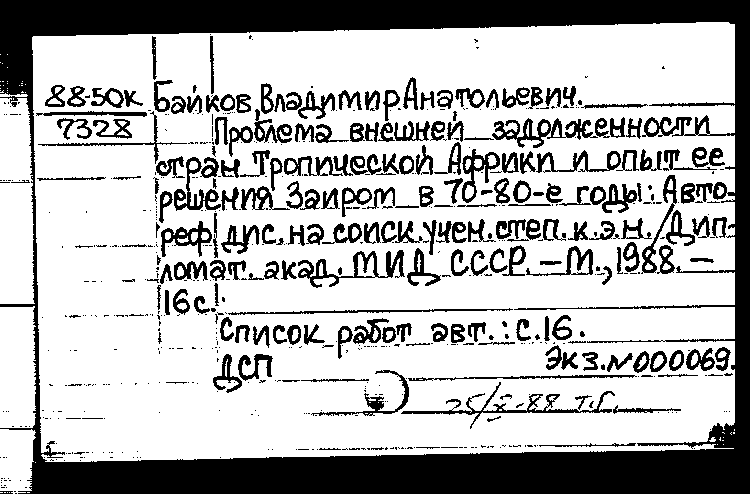 88-50К Байков, Владимир Анатольевич.
7328 Проблема внешней задолженности
стран Тропической Африки и опыт ее
решения Заиром в 70-80-е годы: Авто-
реф. дис. на соиск. учен. степ. к.э.н. / Дип-
ломат. акад. МИД СССР. – М., 1988. –
16 с.
Список работ авт.: с. 16.
ДСП Экз. №000069.
25/X-88 Т.Г.